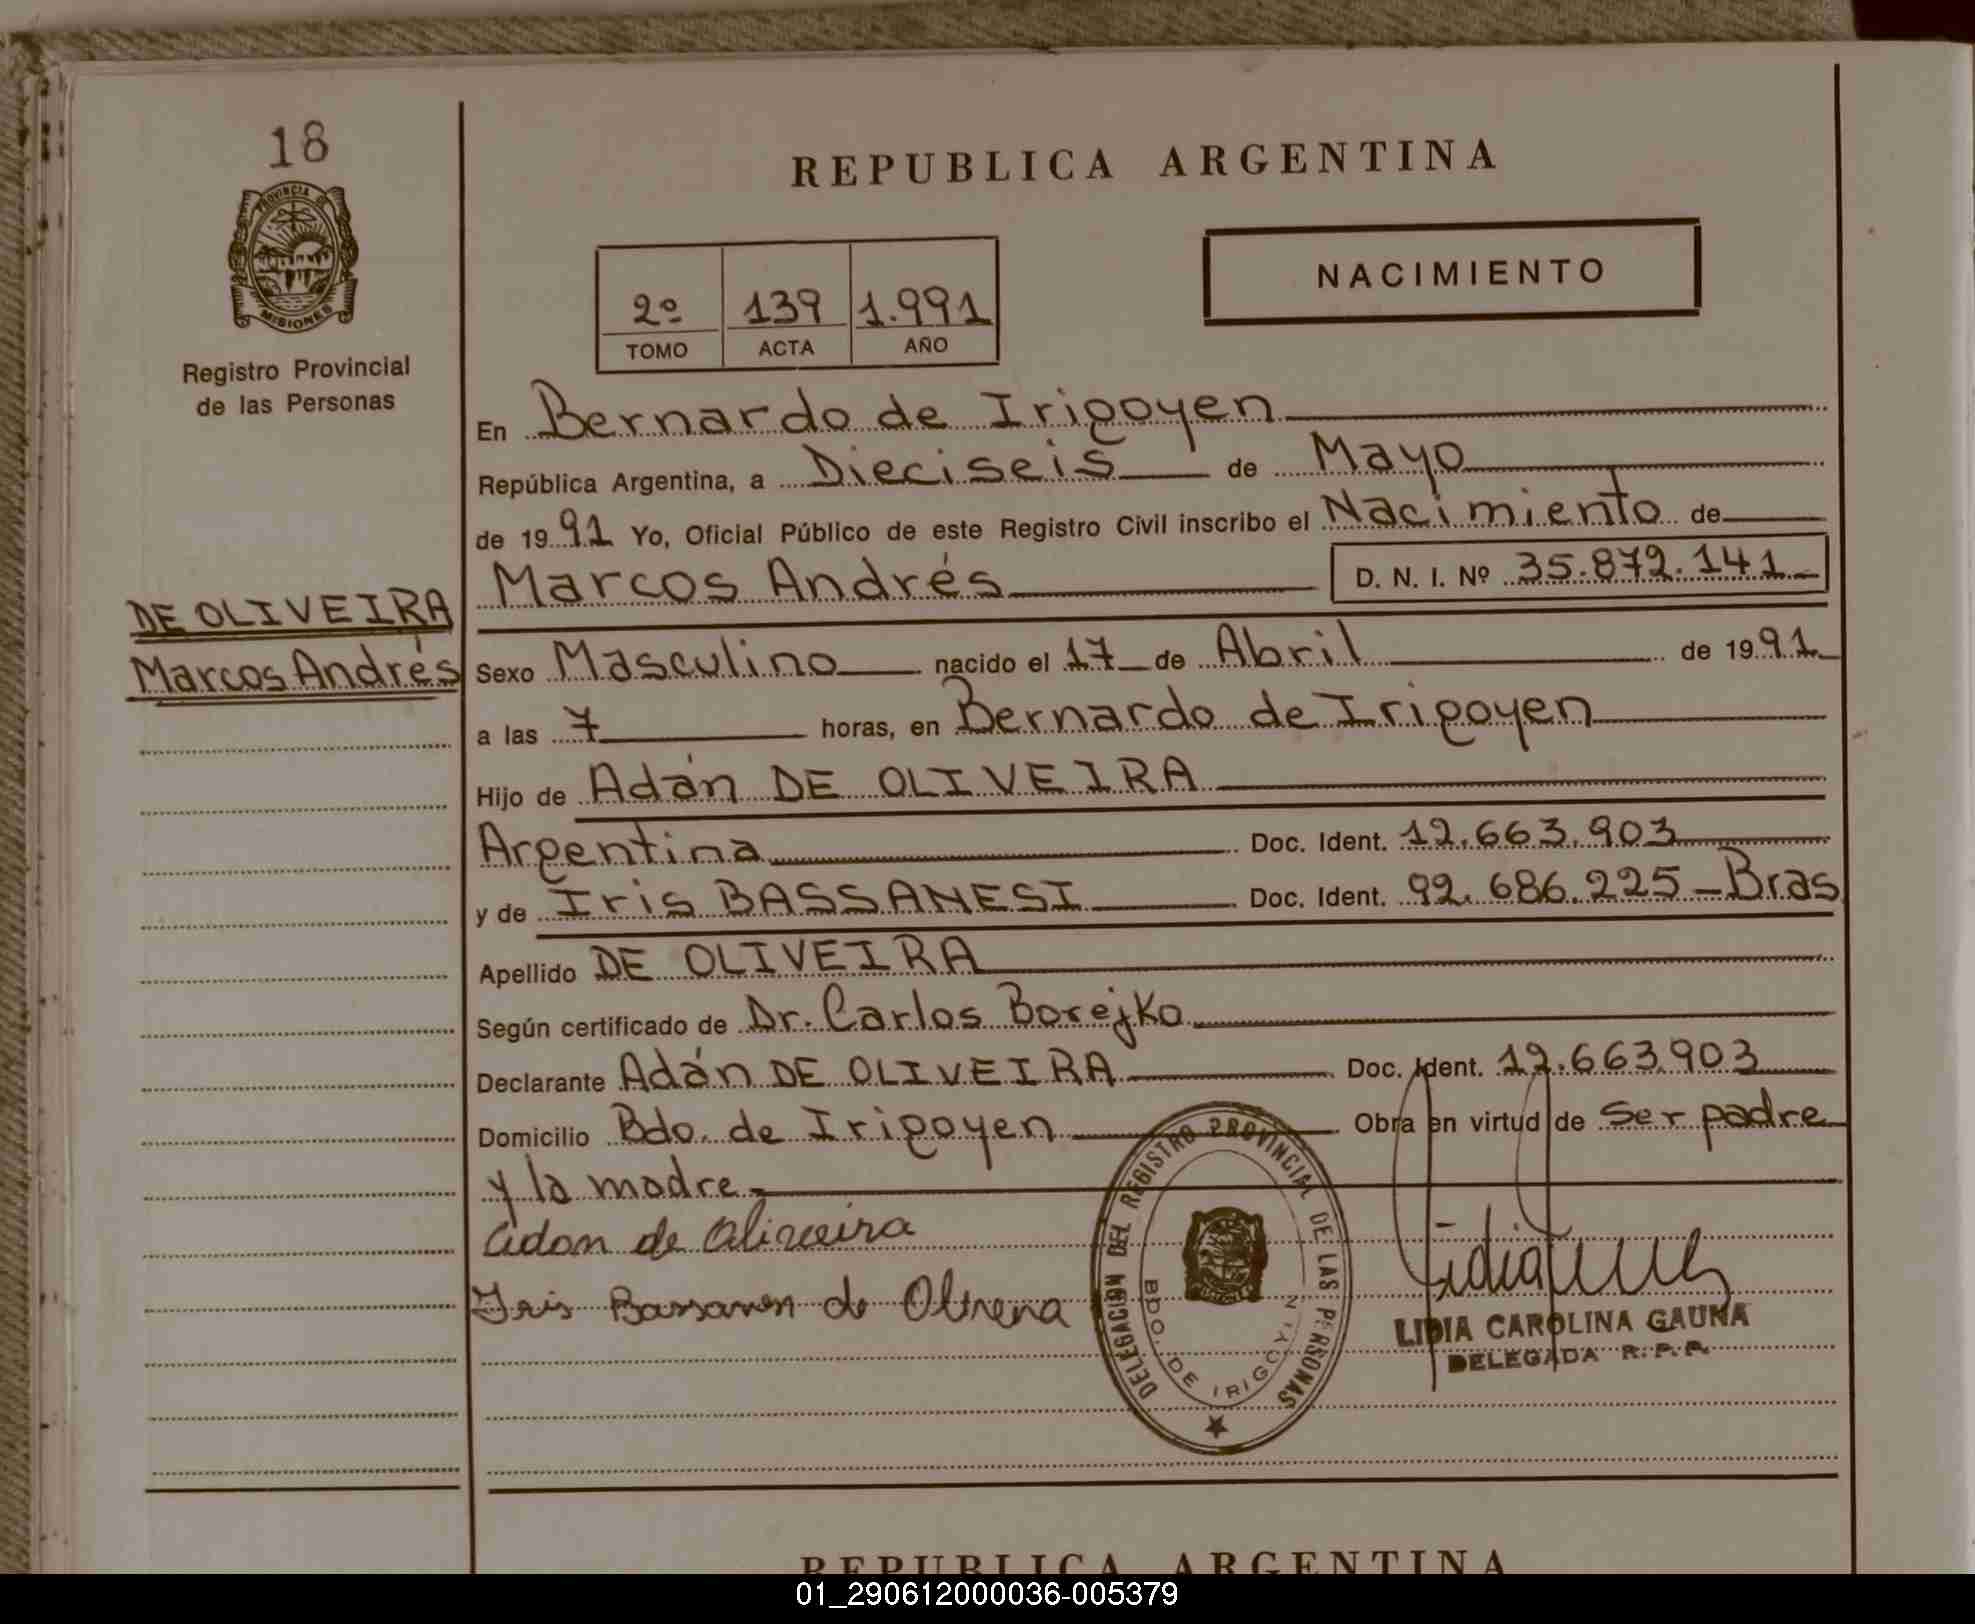 18
PROVINCIA DE
MISIONES
Registro Provincial
de las Personas
DE OLIVEIRA
Marcos Andrés
REPUBLICA ARGENTINA
2º 139 1.991
TOMO ACTA AÑO
NACIMIENTO
En Bernardo de Irigoyen
República Argentina, a Dieciseis de Mayo
de 1991 Yo, Oficial Público de este Registro Civil inscribo el Nacimiento de
Marcos Andrés D. N. I. Nº 35.872.141
Sexo Masculino nacido el 17 de Abril de 1991
a las 7 horas, en Bernardo de Irigoyen
Hijo de Adán DE OLIVEIRA
Argentina Doc. Ident. 12.663.903
y de Iris BASSANESI Doc. Ident. 92.686.225 - Bras
Apellido DE OLIVEIRA
Según certificado de Dr. Carlos Borejko
Declarante Adán DE OLIVEIRA Doc. Ident. 12.663.903
Domicilio Bdo. de Irigoyen Obra en virtud de Ser padre
y la madre
adan de oliveira
Iris de
DELEGACION DEL REGISTRO PROVINCIAL DE LAS PERSONAS
BDO. DE IRIGOYEN
LIDIA CAROLINA GAUNA
DELEGADA R.P.P.
REPUBLICA ARGENTINA
01_290612000036-005379